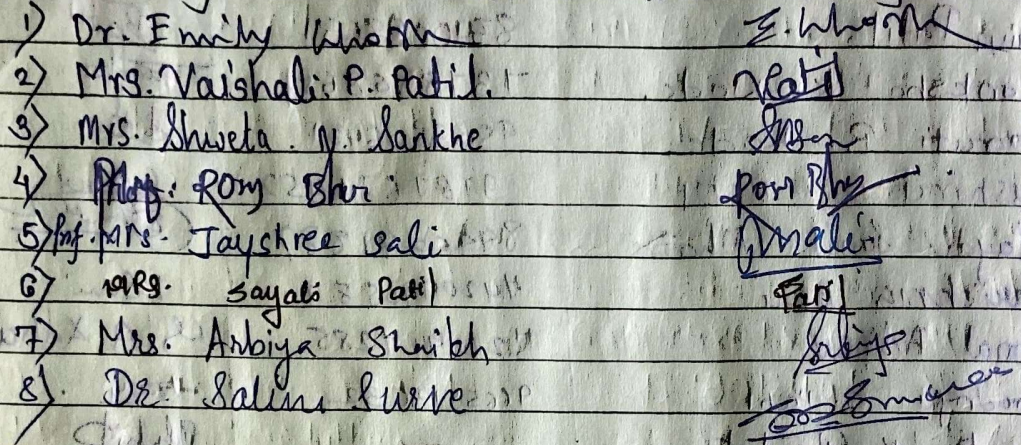 1) Dr. Emily
2) Mrs. Vaishali P. Patil. Patil
3) Mrs. Shweta . N. Sankhe
4) Prof. Romy Bhri
5) Prof. Mrs. Jayshree Sali
6) MRS. Sayali Patil Patil
7) Mrs. Arbiya Shaikh Arbiya
8). Dr. Salini Surve